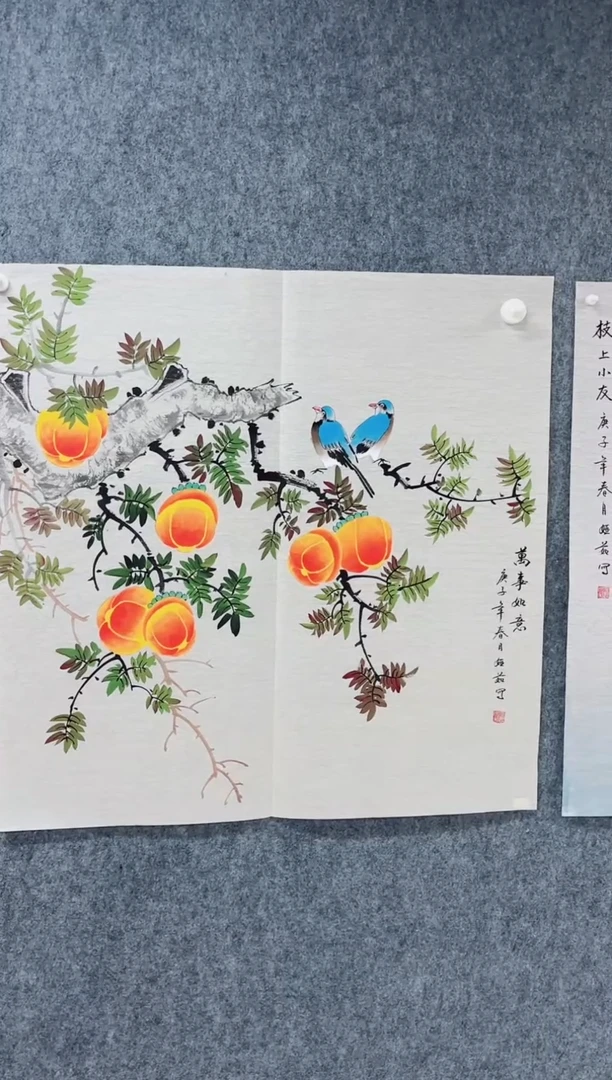 萬事如意
庚子年春月
枝上小友 庚子年春月